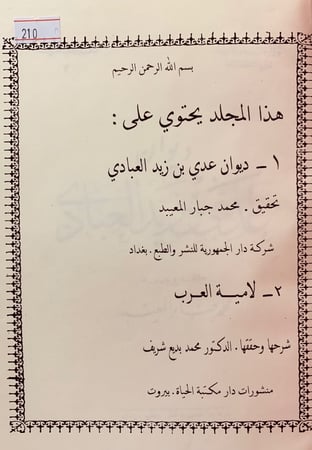 210
بسم الله الرحمن الرحيم
هذا المجلد يحتوي على :
١ - ديوان عدي بن زيد العبادي
تحقيق . محمد جبار المعيبد
شركة دار الجمهورية للنشر والطبع . بغداد
٢ - لامية العرب
شرحها وحققها . الدكتور محمد بديع شريف
منشورات دار مكتبة الحياة . بيروت